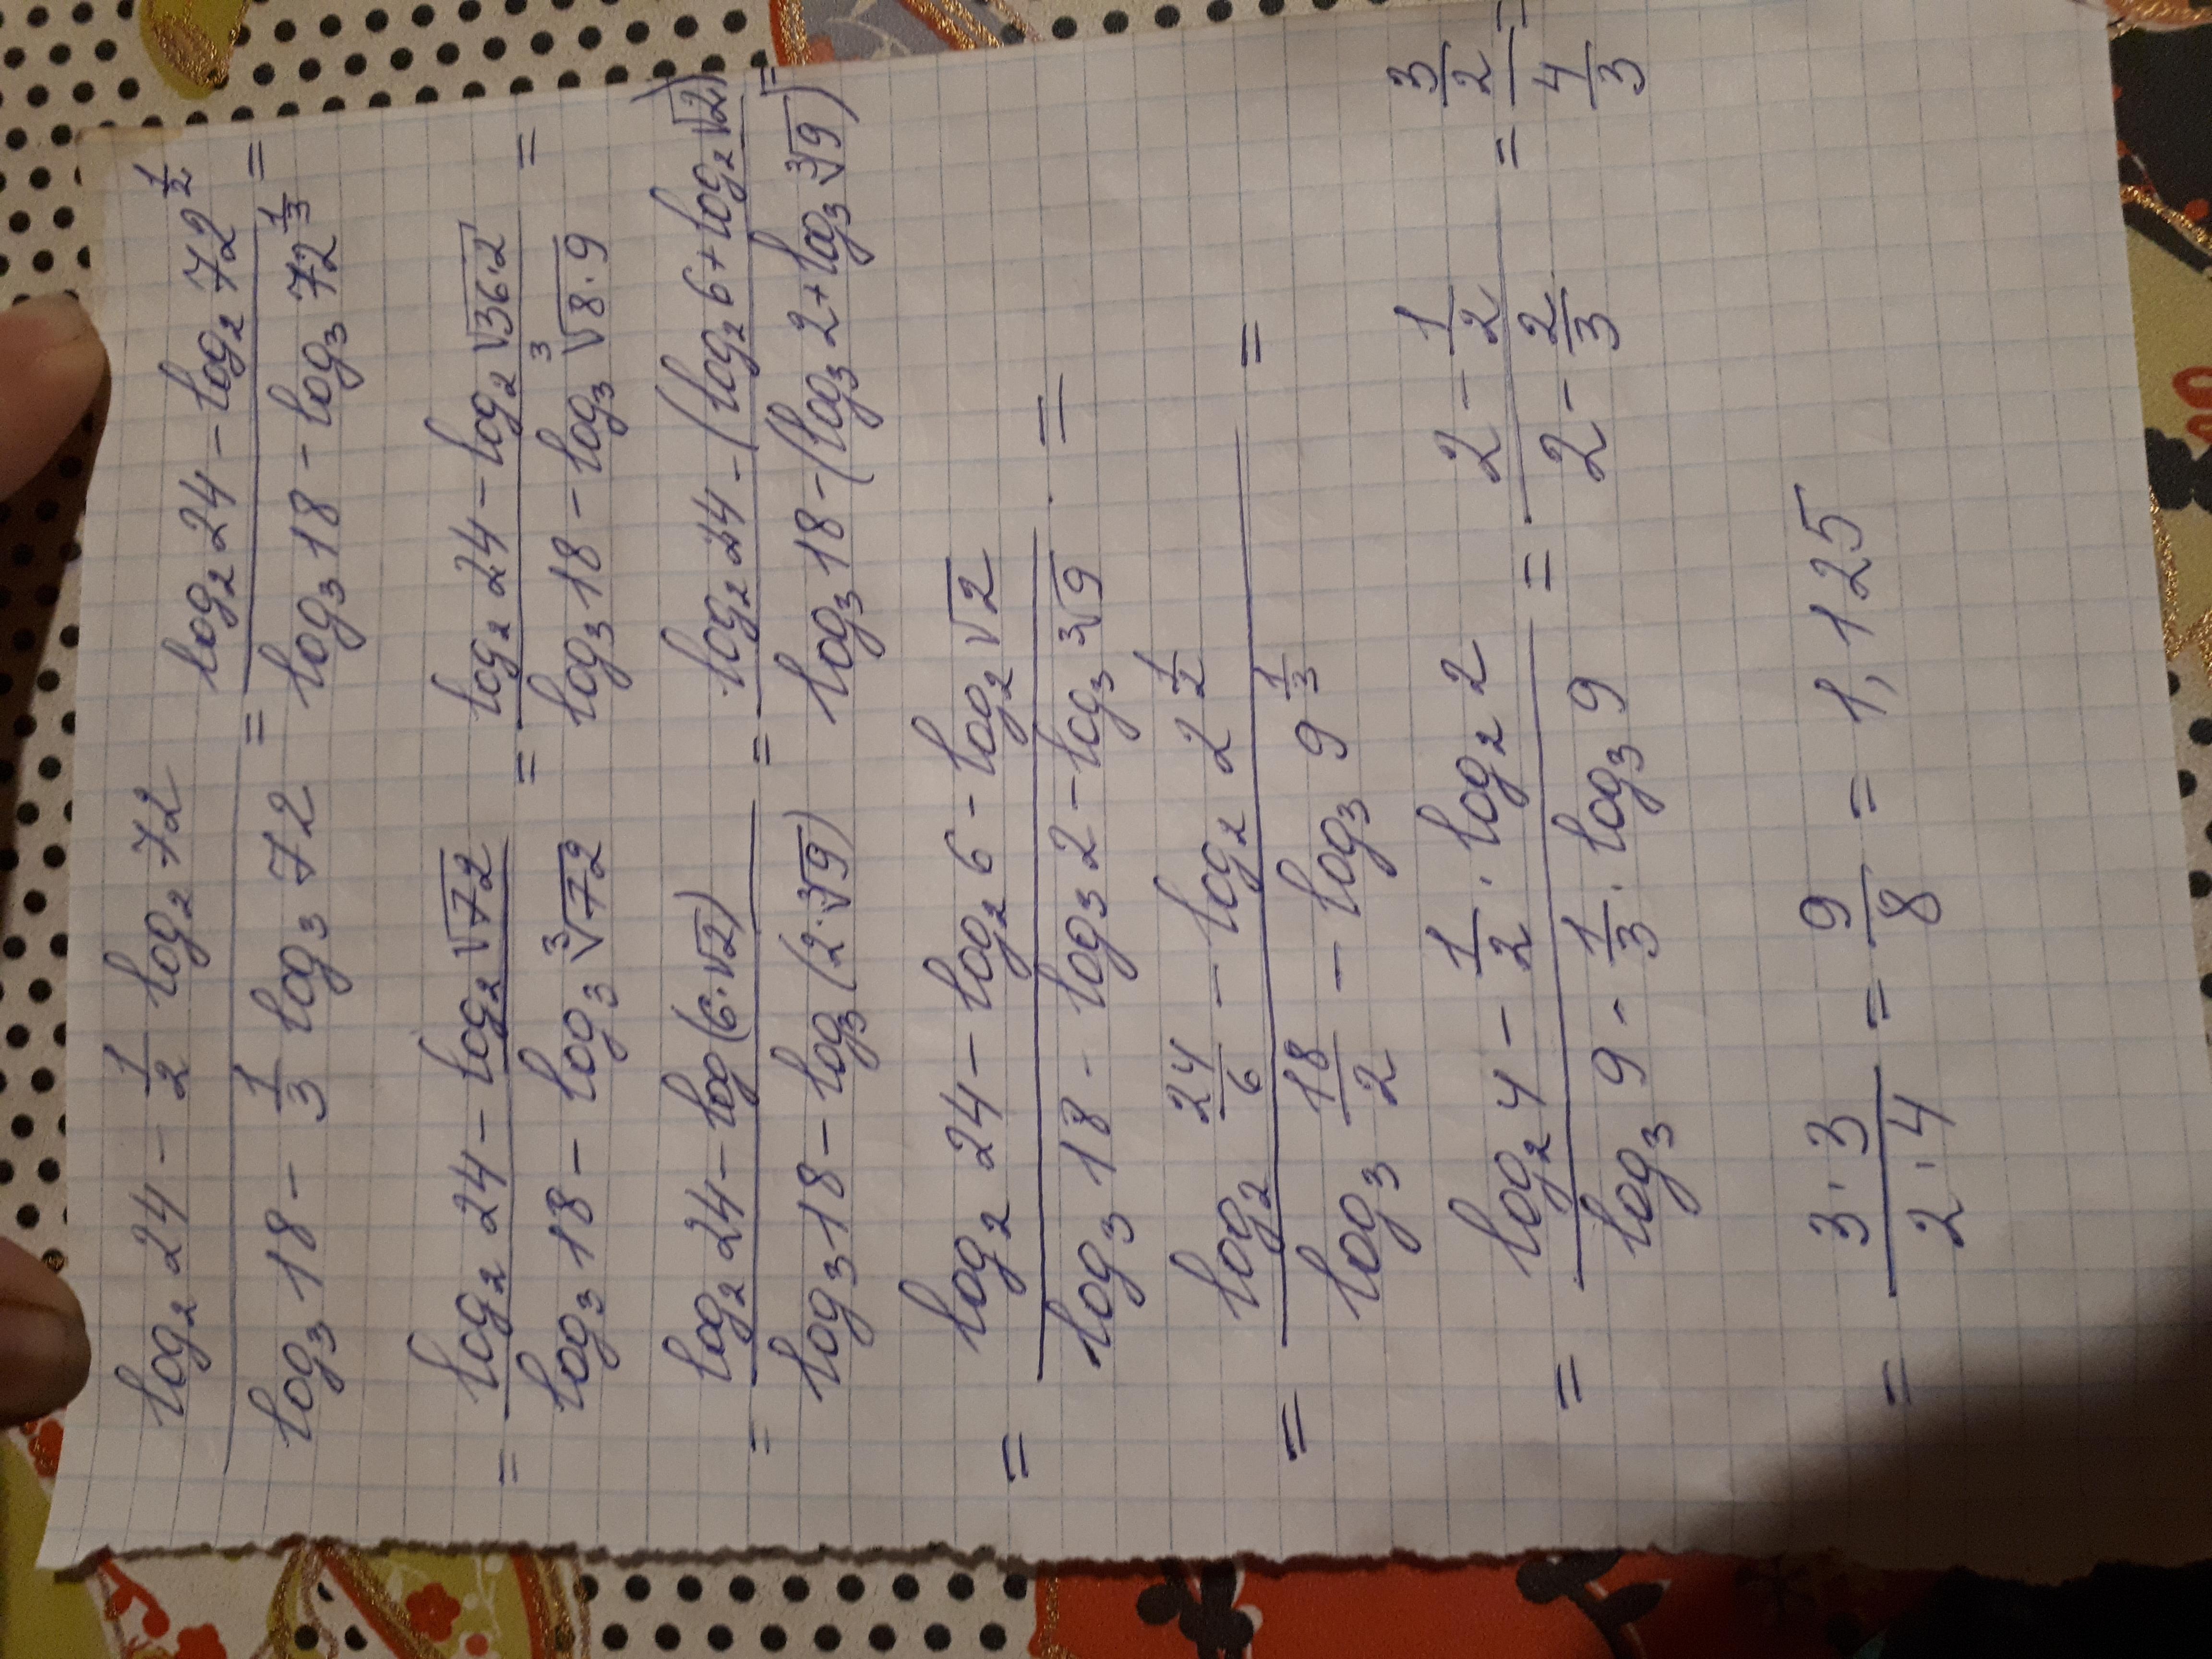 (log₂ 24 − 1/2 log₂ 72) / (log₃ 18 − 1/3 log₃ 72) = (log₂ 24 − log₂ 72^(1/2)) / (log₃ 18 − log₃ 72^(1/3)) =
= (log₂ 24 − log₂ √72) / (log₃ 18 − log₃ ∛72) = (log₂ 24 − log₂ √(36·2)) / (log₃ 18 − log₃ ∛(8·9)) =
= (log₂ 24 − log (6·√2)) / (log₃ 18 − log₃ (2·∛9)) = (log₂ 24 − (log₂ 6 + log₂ √2)) / (log₃ 18 − (log₃ 2 + log₃ ∛9)) =
= (log₂ 24 − log₂ 6 − log₂ √2) / (log₃ 18 − log₃ 2 − log₃ ∛9) =
= (log₂ 24/6 − log₂ 2^(1/2)) / (log₃ 18/2 − log₃ 9^(1/3)) =
= (log₂ 4 − 1/2 · log₂ 2) / (log₃ 9 − 1/3 · log₃ 9) = (2 − 1/2) / (2 − 2/3) = (3/2) / (4/3) =
= (3·3) / (2·4) = 9/8 = 1,125